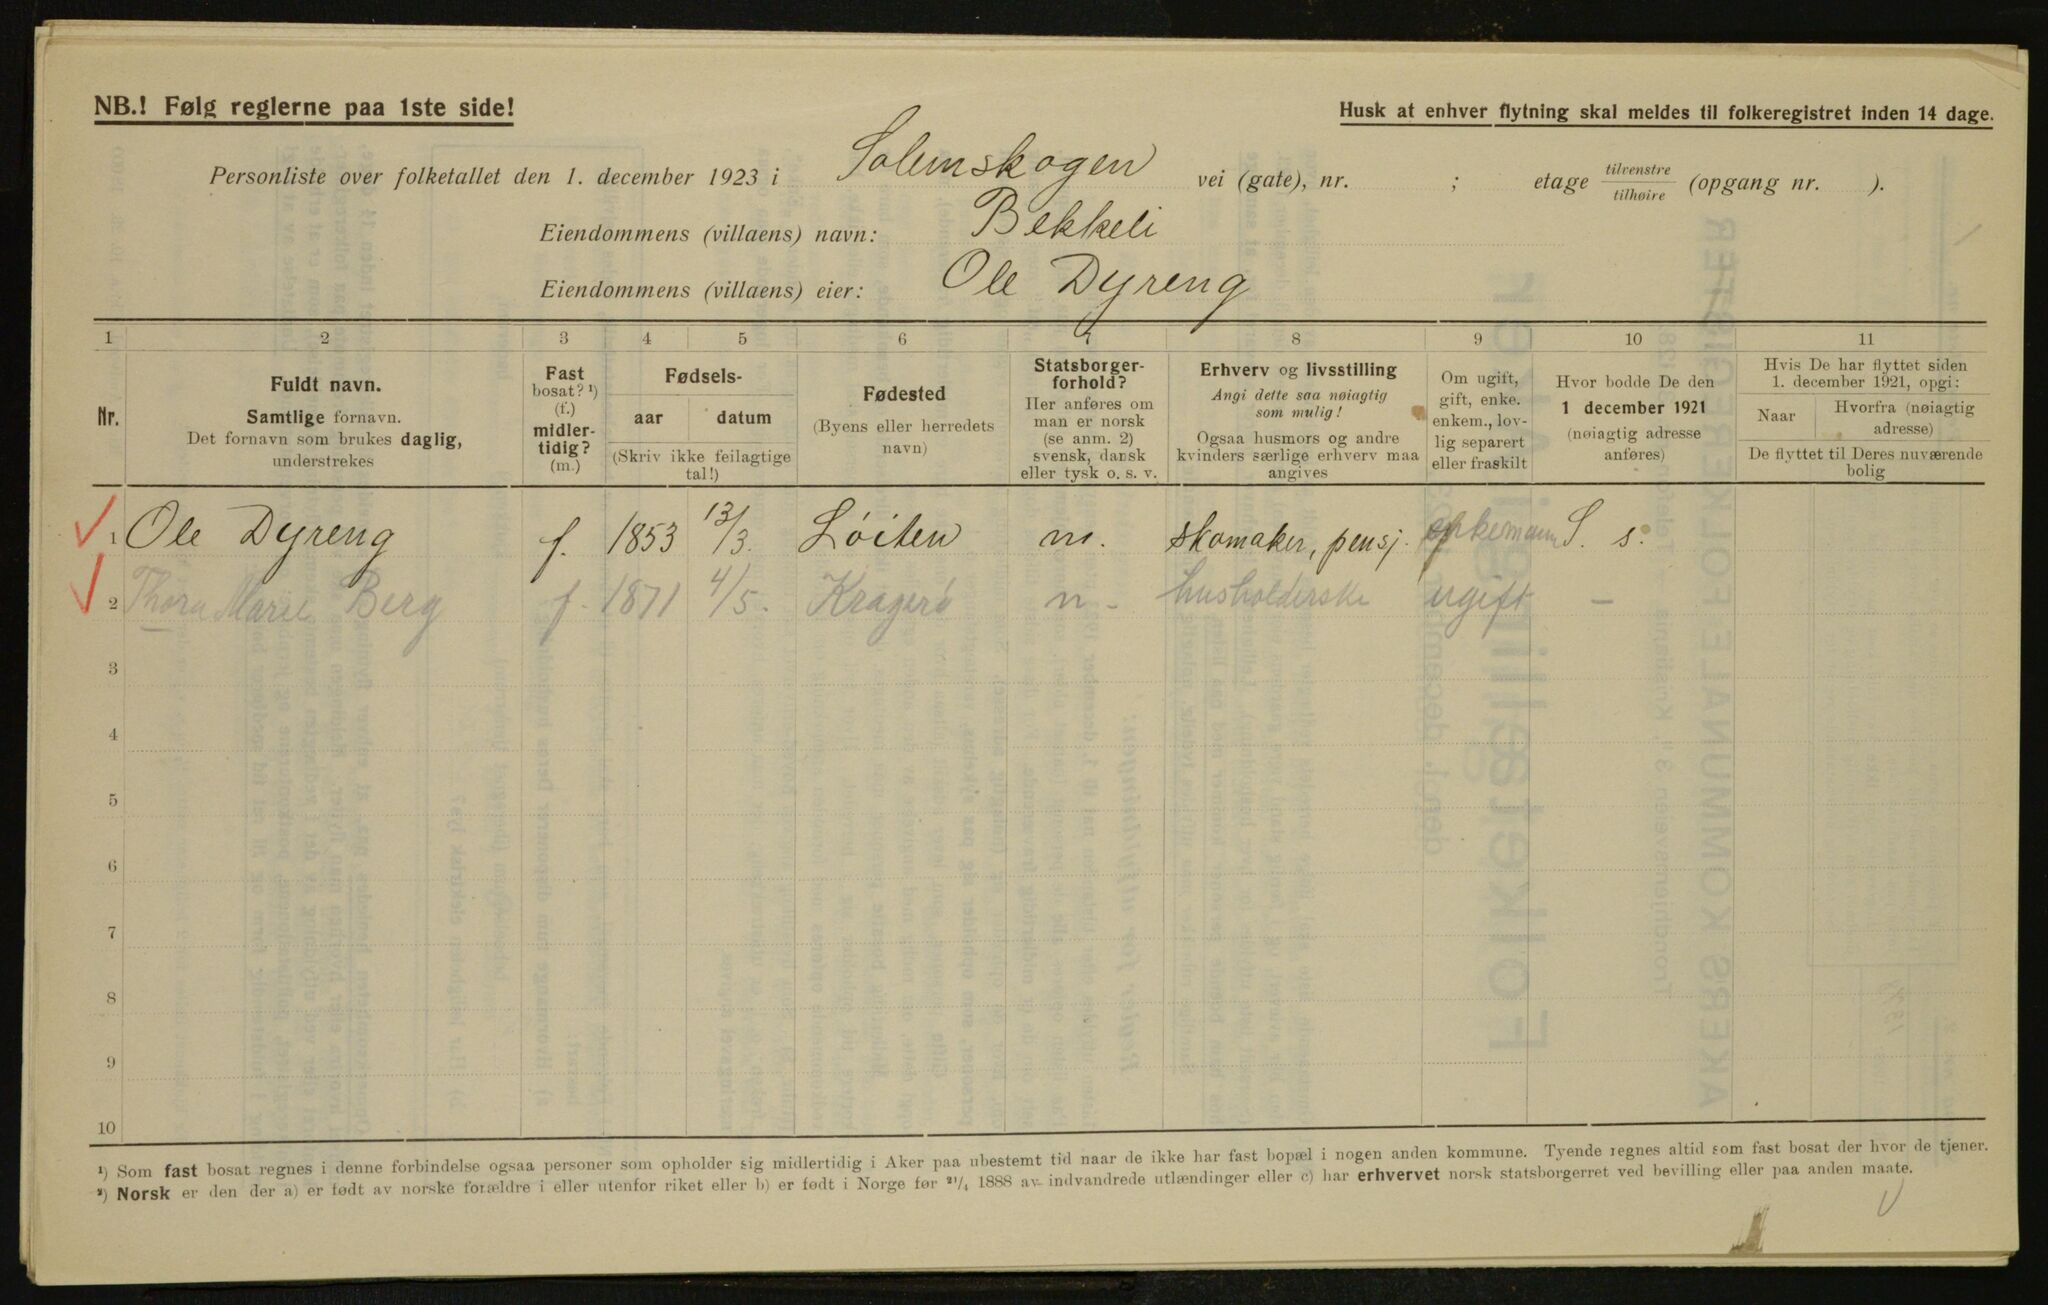 NB.! Følg reglerne paa 1ste side!
Husk at enhver flytning skal meldes til folkeregistret inden 14 dage.
Personliste over folketallet den 1. december 1923 i Solemskogen vei (gate), nr. ; etage tilvenstre/tilhøire (opgang nr. ).
Eiendommens (villaens) navn: Bekkeli
Eiendommens (villaens) eier: Ole Dyreng
1 2 3 4 5 6 7 8 9 10 11
Nr.
Fuldt navn.
Samtlige fornavn.
Det fornavn som brukes daglig,
understrekes
Fast
bosat? ¹)
(f.)
midler-
tidig?
(m.)
Fødsels-
aar datum
(Skriv ikke feilagtige
tal!)
Fødested
(Byens eller herredets
navn)
Statsborger-
forhold?
Her anføres om
man er norsk
(se anm. 2)
svensk, dansk
eller tysk o. s. v.
Erhverv og livsstilling
Angi dette saa nøiagtig
som mulig!
Ogsaa husmors og andre
kvinders særlige erhverv maa
angives
Om ugift,
gift, enke.
enkem., lov-
lig separert
eller fraskilt
Hvor bodde De den
1 december 1921
(nøiagtig adresse
anføres)
Hvis De har flyttet siden
1. december 1921, opgi:
Naar Hvorfra (nøiagtig
adresse)
De flyttet til Deres nuværende
bolig
1 Ole Dyreng f. 1853 13/3. Løiten n. skomaker, pensj. enkemann S. s.
2 Thora Marie Berg f. 1871 4/5. Kragerø n. husholderske ugift –
3
4
5
6
7
8
9
10
¹) Som fast bosat regnes i denne forbindelse ogsaa personer som opholder sig midlertidig i Aker paa ubestemt tid naar de ikke har fast bopæl i nogen anden kommune. Tyende regnes altid som fast bosat der hvor de tjener.
²) Norsk er den der a) er født av norske forældre i eller utenfor riket eller b) er født i Norge før ²¹/₄ 1888 av indvandrede utlændinger eller c) har erhvervet norsk statsborgerret ved bevilling eller paa anden maate.